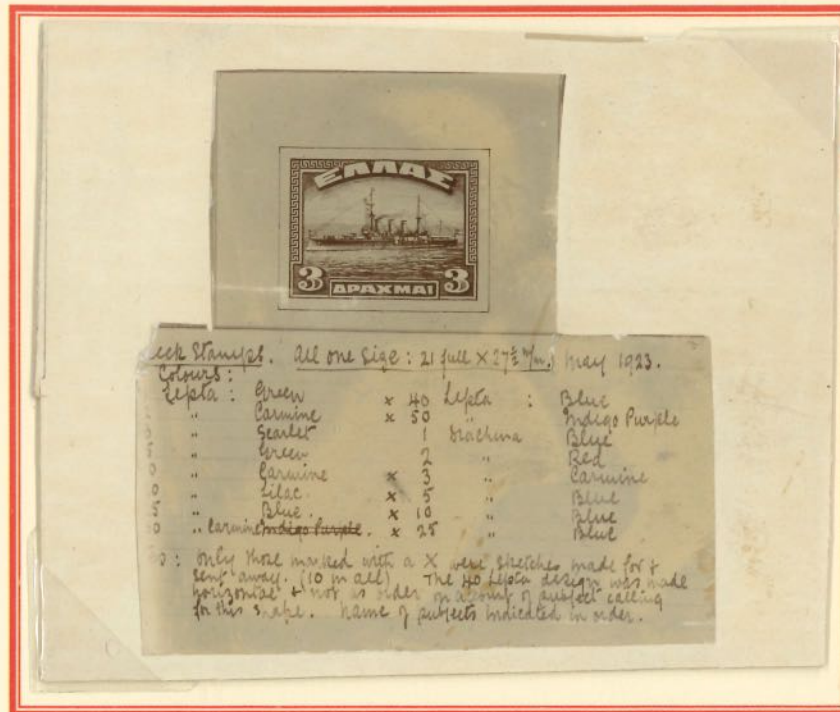 ΕΛΛΑΣ
3 ΔΡΑΧΜΑΙ 3
eek Stamps. All one size: 21 full × 27½ m/m. May 1923.
Colours:
Lepta : Green × 40 Lepta : Blue
" Carmine × 50 " Indigo Purple
" Scarlet 1 Drachma Blue
" Green 2 " Red
0 " Carmine × 3 " Carmine
0 " Lilac. × 5 " Blue
5 " Blue. × 10 " Blue
0 " Carmine Indigo Purple. × 25 " Blue
: Only those marked with a X were sketches made for &
sent away. (10 in all) The 40 Lepta design was made
horizontal & not as order on account of subject calling
for this shape. Name of subjects indicated in order.